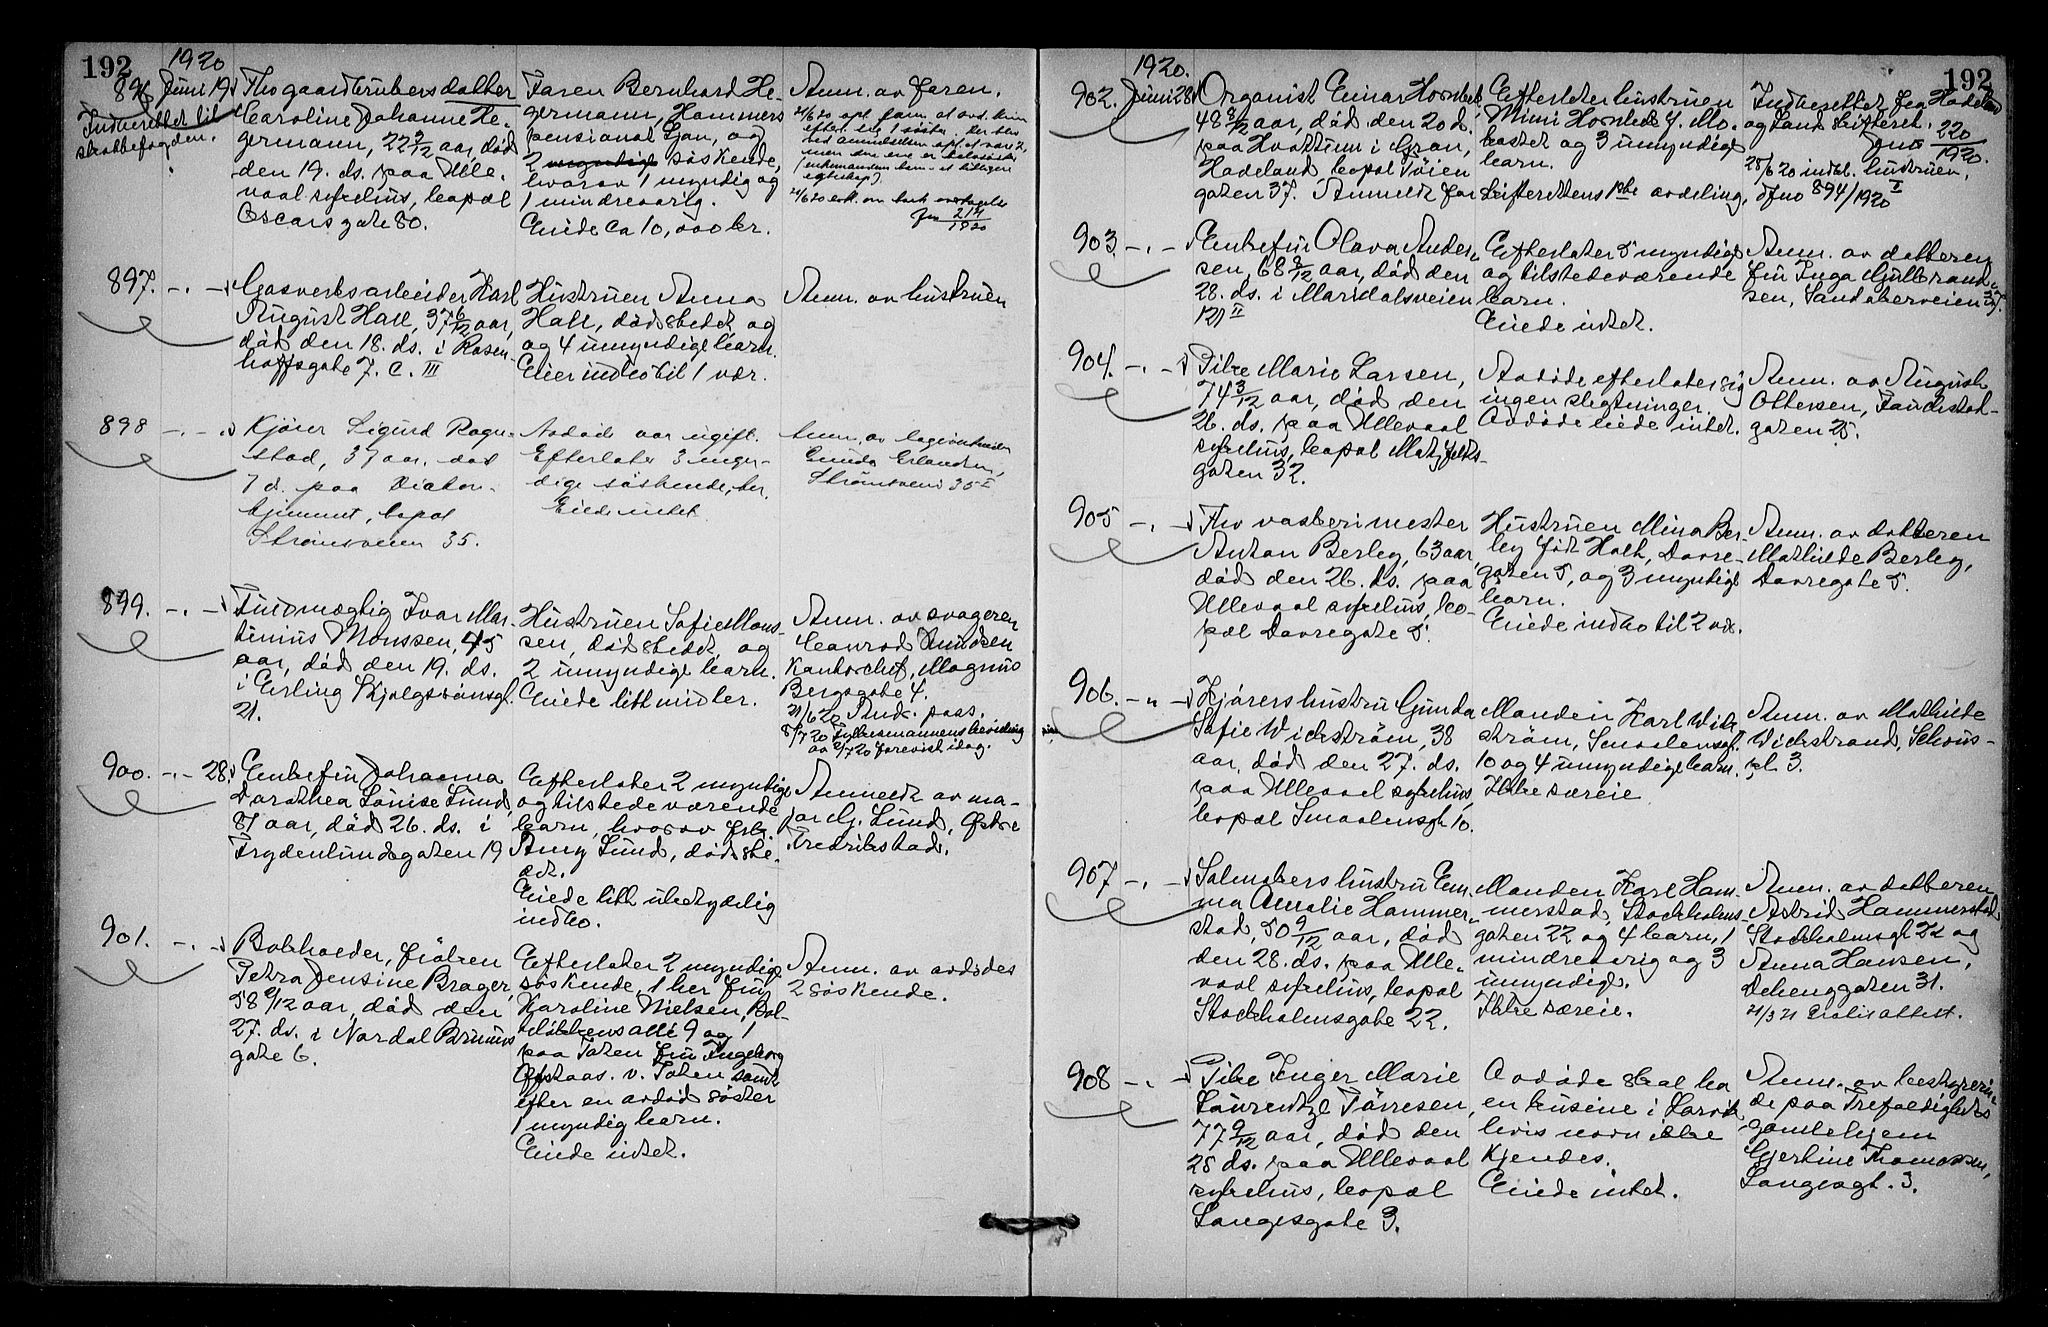 192
1920
896 Juni 19
Indberettet til
skattefogden.
Fhv gaardbrukers datter
Caroline Johanne He-
germann, 22 9/12 aar, död
den 19. ds. paa Ulle-
vaal sykehus, bopæl
Oscars gate 80.
Faren Bernhard He-
germann, Hammers
pensionat Ljan, og
2 söskende,
hvorav 1 myndig og
1 mindreaarig.
Eiede ca 10,000 kr.
Anm. av faren.
Jno 214/1920
897. -"-
Gasverksarbeider Karl
August Hall, 37 6/12 aar,
död den 18. ds. i Rosen-
hoffsgate 7. C. III
Hustruen Anna
Hall, dödsstedet og
og 4 umyndige barn.
Eier indbo til 1 vær.
Anm. av hustruen
898 -"-
Kjører Sigurd Rogn-
stad, 37 aar, död
7 d. paa Diakon-
hjemmet, bopæl
Strømsveien 35.
Avdöde var ugift.
Efterlater 3 myn-
dige söskende, her.
Eiede intet
Anm. av
Strömsveien 35 I
899. -"-
Fuldmægtig Ivar Mar-
tinius Monssen, 45
aar, död den 19. ds.
i Erling Skjalgssönsgt.
21.
Hustruen Sofie Mons-
sen, dödsstedet og
2 umyndige barn.
Eiede litt midler.
Anm. av svogeren
Conrad Knudsen
Kontorchef, Magnus
Bergsgate 4.
21/6 20 Andr. pass.
8/7 20 Fylkesmannens bevilling
av 2/7 20 forevist idag.
900. -"- 28
Enkefru Johanna
Dorothea Louise Lund,
81 aar, död 26. ds. i
Frydenlundsgaten 19
Efterlater 2 myndige
og tilstedeværende
barn, hvorav frk.
Amy Lund, dödsste-
det.
Eiede litt ubetydelig
indbo.
Anmeldt av ma-
jor G. Lund,
Fredrikstad.
901. -"-
Bokholder, fröken
Petra Jensine Brager,
58 9/12 aar, död den
27. ds. i Nordal Bruuns
gate 6.
Efterlater 2 myndige
söskende, 1 her fru
Karoline Nielsen, Bol-
telökkens allé 9 og 1
paa Toten fru Ingeborg
v. Toten samt
efter en avdöd söster
1 myndig barn.
Eiede intet.
Anm. av avdödes
2 söskende.
192
1920.
902. Juni 28
Organist Einar Hornbek,
48 8/12 aar, död den 20 d.
paa Hvattum i Gran,
Hadeland, bopæl Töien
gaten 37. Anmeldt for
Efterlater hustruen
Mimi Hornbek f. Mo-
bostet og 3 umyndige
barn.
skifterettens 1ste avdeling.
Indberettet fra Hadeland
og Land skifterett.
Jno 220/1920.
28/6 20 indk. hustruen.
Jno 894/1920 I
903. -"-
Enkefru Olava Ander-
sen, 68 8/12 aar, död den
28. ds. i Maridalsveien
121 II
Efterlater 5 myndige
og tilstedeværende
barn.
Eiede intet.
Anm. av datteren
fru Inga Gulbrand-
sen, Sandakerveien 37.
904. -"-
Pike Marie Larsen,
74 3/12 aar, död den
26. ds. paa Ullevaal
sykehus, bopæl Motzfeldts-
gaten 32.
Avdöde efterlater sig
ingen slegtninger.
Avdöde eiede intet.
Anm. av August
Ottersen, Tandstad-
gaten 25.
905 -"-
Fhv vaskerimester
Anton Berley, 63 aar,
död den 26. ds. paa
Ullevaal sykehus, bo-
pæl Dovregate 5.
Hustruen Mina Ber-
ley föt Holt, Dovre-
gaten 5, og 3 myndige
barn.
Eiede indbo til 2 vær.
Anm. av datteren
Mathilde Berley,
Dovregate 5.
906. -"-
Kjörers hustru Gunda
Sofie Wickström, 38
aar, död den 27. ds.
paa Ullevaal sykehus,
bopæl Smaalensgt 10.
Manden Karl Wick-
ström, Smaalensgt.
10 og 4 umyndige barn.
Ikke særeie
Anm. av Mathilde
Wickstrand, Schous-
pl. 3.
907 -"-
Salmakers hustru Em-
ma Amalie Hammer-
stad, 50 9/12 aar, död
den 28. ds. paa Ulle-
vaal sykehus, bopæl
Stockholmsgate 22.
Manden Karl Ham-
merstad, Stockholms-
gaten 22 og 4 barn, 1
mindreaarig og 3
umyndige.
Ikke særeie.
Anm. av datteren
Astrid Hammerstad
Stockholmsgt 22 og
Anna Hansen,
Dehengaten 31.
21/3 21 Gratis attest.
908 -"-
Pike Inger Marie
Laurentze Törresen,
77 9/12 aar, död den
28 ds. paa Ullevaal
sykehus, bopæl
Langesgate 3.
Avdöde skal ha
en kusine i Larvik
hvis navn ikke
kjendes.
Eiede intet.
Anm. av bestyrerin-
de paa Trefoldigheds
gamlehjem
Gjertine Thomassen,
Langesgt. 3.